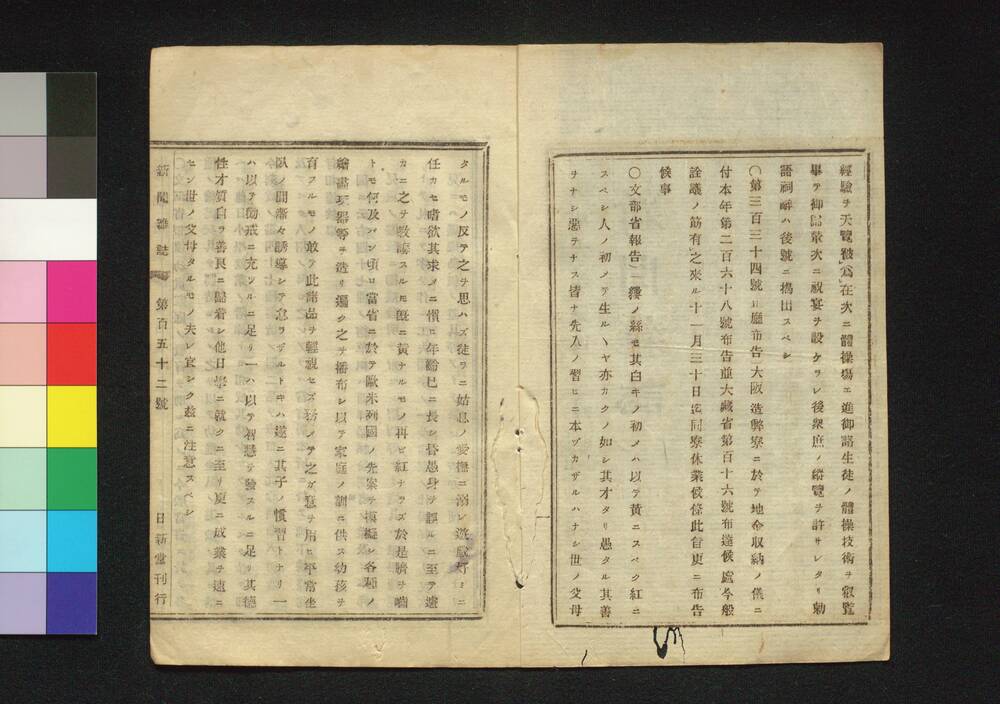 經驗ヲ天覽被爲在次ニ體操場エ進御諸生徒ノ體操技術ヲ叡覽
畢テ御歸輦次ニ祝宴ヲ設ケラレ後衆庶ノ縱覽ヲ許サレタリ勅
語祠辭ハ後號ニ揭出スベシ
〇第三百三十四號 廳布告大阪造弊寮ニ於テ地金收納ノ儀ニ
付本年第二百六十八號布告並大藏省第百十六號布達候處今般
詮議ノ筋有之來ル十一月三十日迄同寮休業候條此旨更ニ布告
候事
〇文部省報告ニ纓ノ絲モ其白キノ初メハ以テ黃ニスベク紅ニ
スベシ人ノ初メテ生ルヽヤ亦カクノ如シ其才タリ愚タル其善
ヲナシ惡ヲナス皆ナ先入ノ習ヒニ本ヅカザルハナシ世ノ父母
タルモノ反テ之ヲ思ハズ徒ラニ姑息ノ愛撫ニ溺レ遊戲好ミニ
任カセ嗜欲其求メニ慣ニ年齡已ニ長シ昏愚身ヲ誤ルニ至テ遽
カニ之ヲ救護スルモ旣ニ黃ナルモノ再ビ紅ナラズ於是臍ヲ嚙
トモ何及バン頃日當省ニ於テ歐米列國ノ先案ヲ模擬シ各種ノ
繪畫玩器等ヲ造リ遍ク之ヲ播布シ以テ家庭ノ訓ニ供ス幼孩ヲ
育フルモノ敢テ此諸品ヲ輕視セズ務メテ之ガ意ヲ用ヒ平常坐
臥ノ間漸々誘導シテ怠ラザルトキハ遂ニ其子ノ慣習トナリ一
ハ以テ勸戒ニ充ツルニ足リ一ハ以テ智慧ヲ發スルニ足リ其德
性才質自ラ善良ニ歸着シ他日學ニ就クニ至リ更ニ成業ヲ速ニ
セン世ノ父母タルモノ夫レ宜シク玆ニ注意スベシ
新聞雜誌 第百五十二號 日新堂刊行